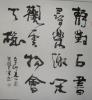 靜對古書
尋樂趣閑
觀雲物會
天機